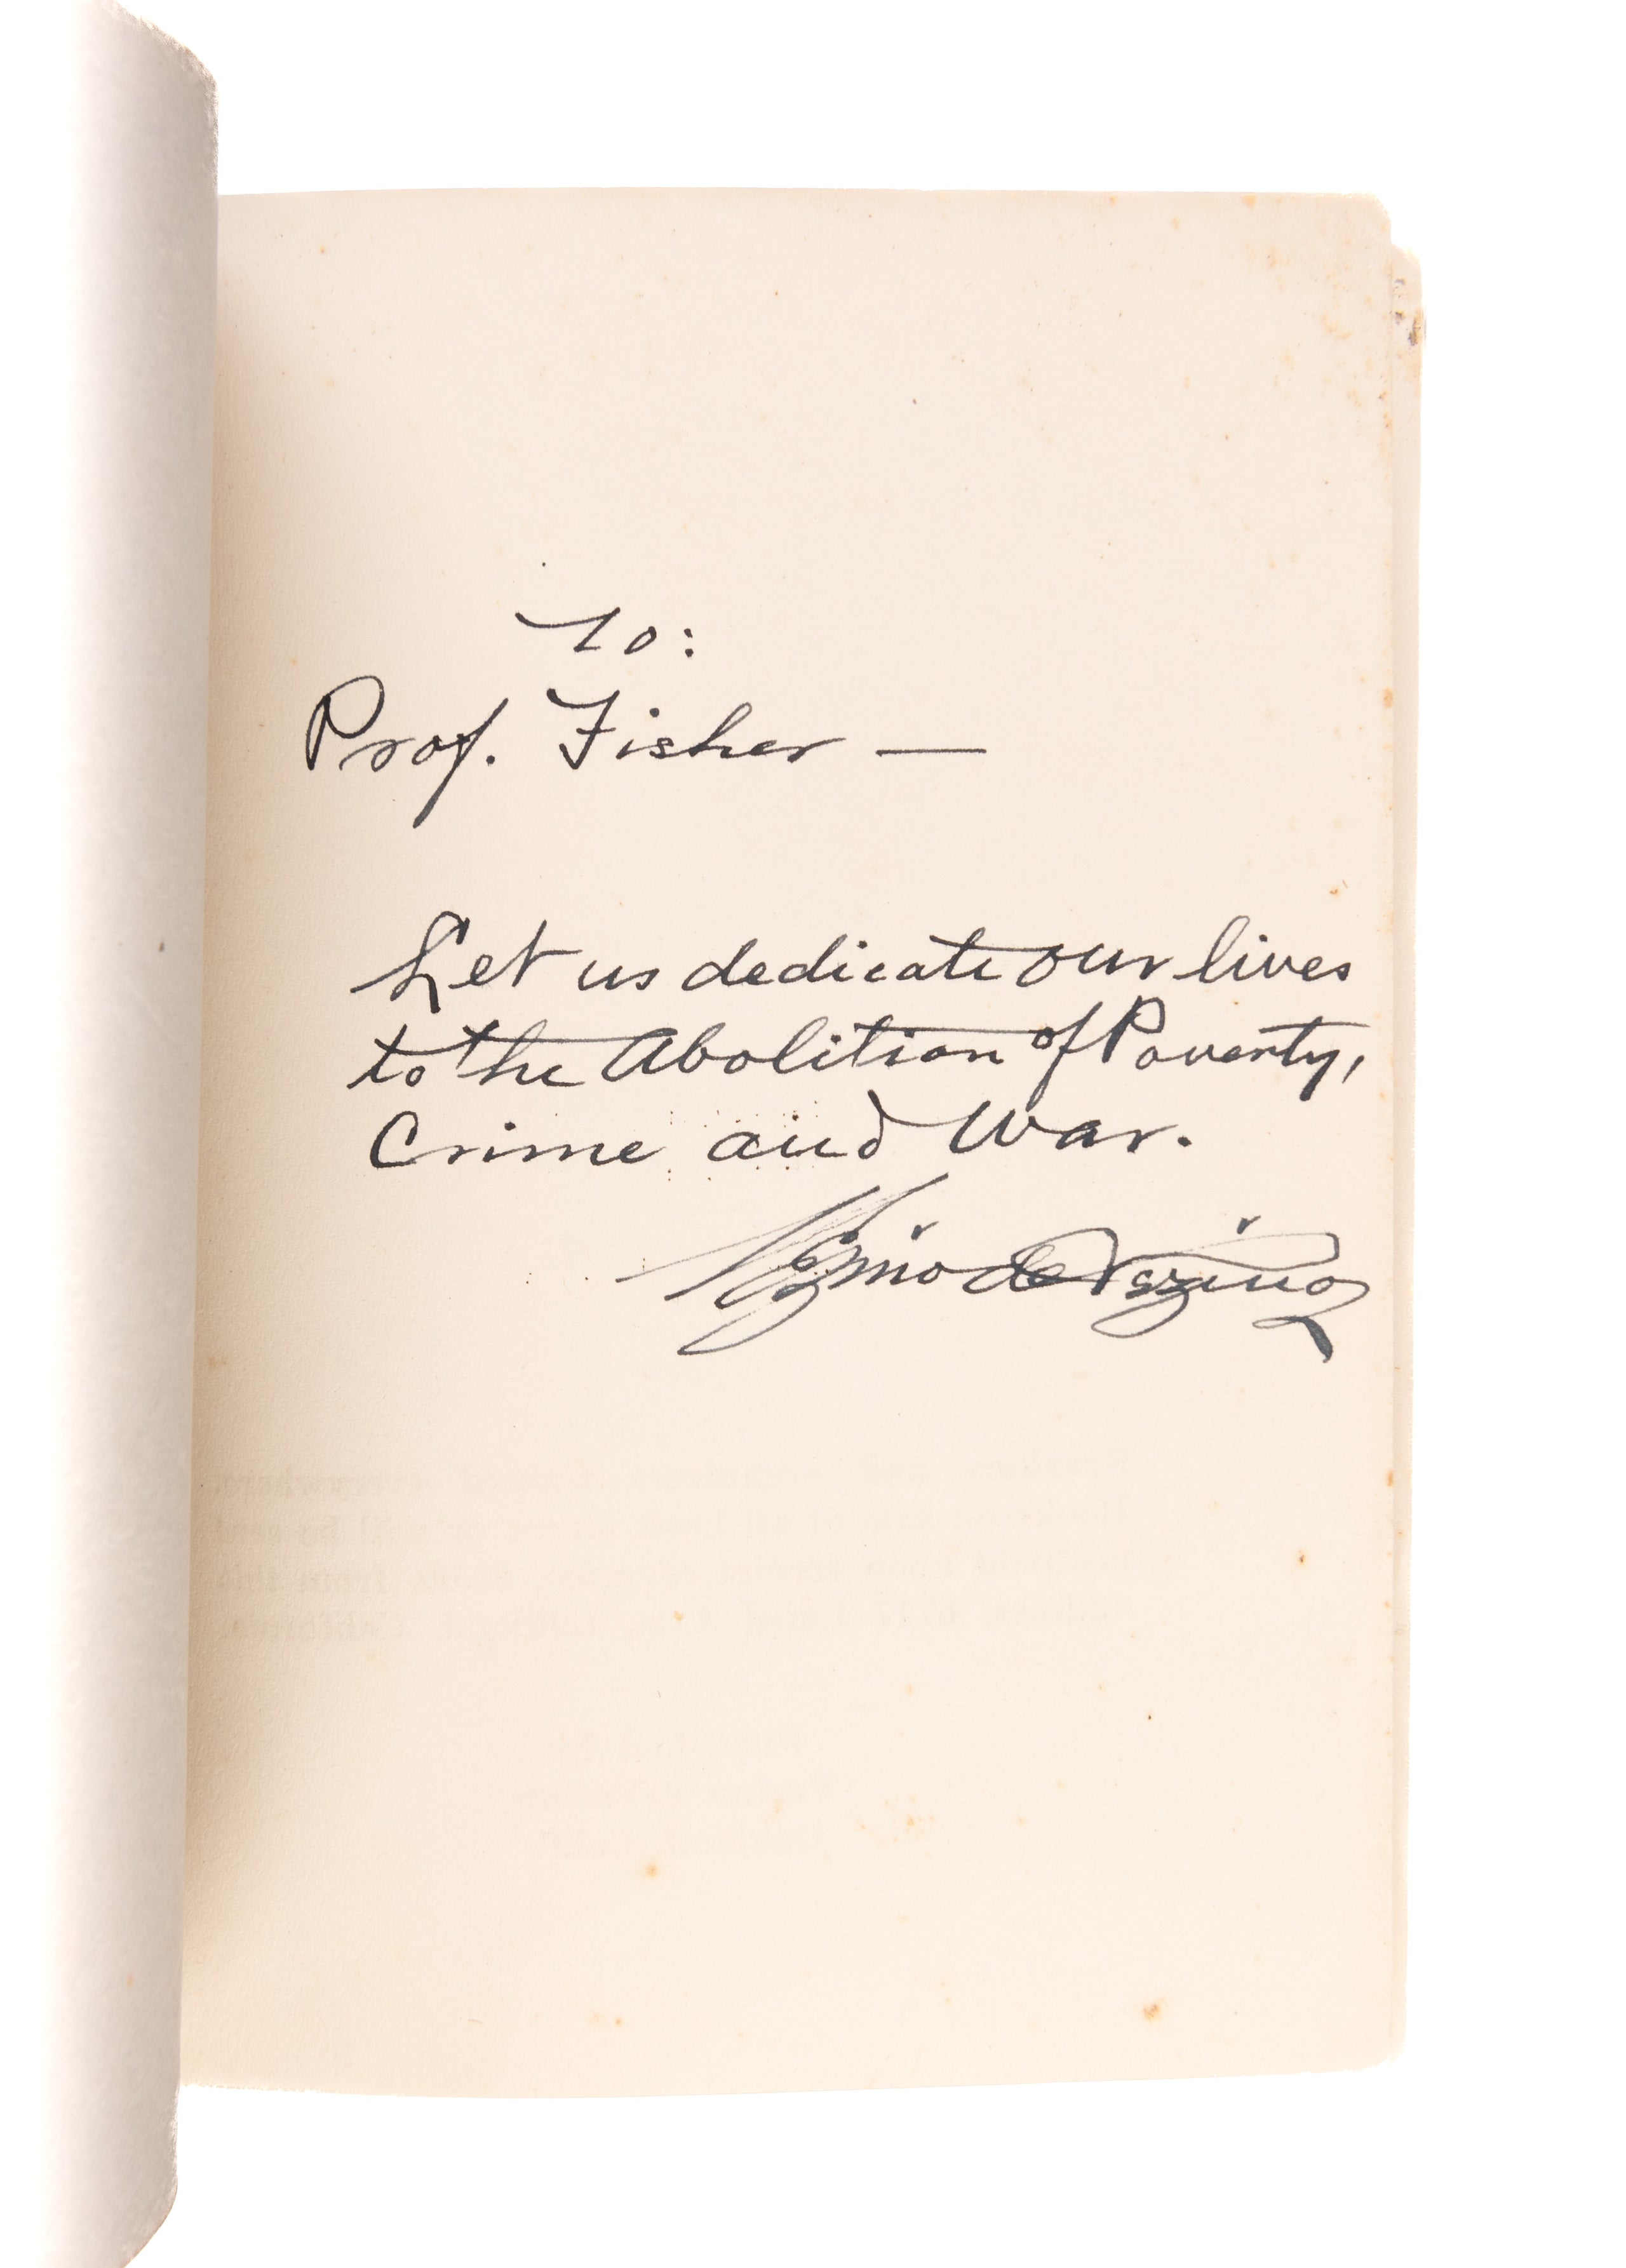 To:
Prof. Fisher —
Let us dedicate our lives
to the Abolition of Poverty,
Crime and War.
de